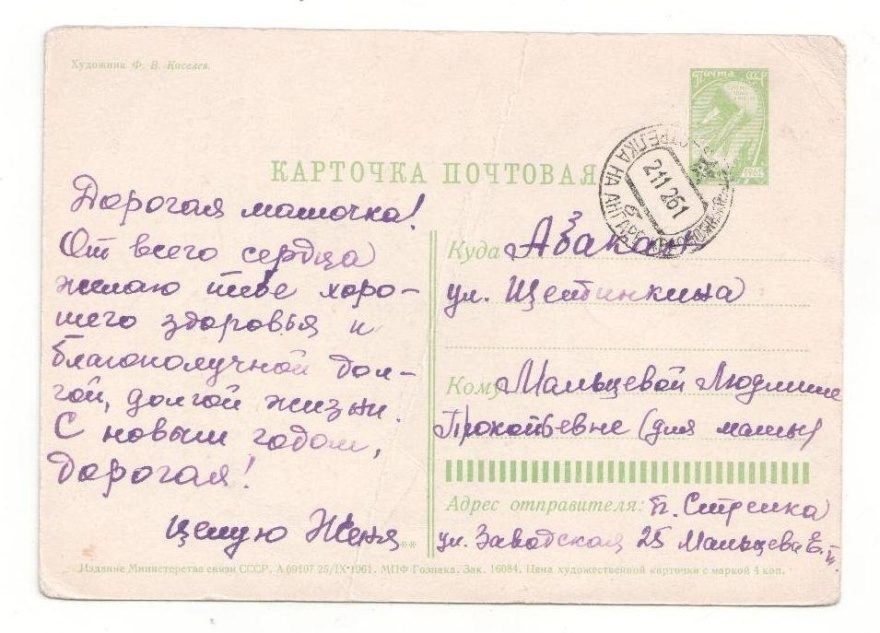 Художник Ф. В. Киселев.
ПОЧТА СССР
КАРТОЧКА ПОЧТОВАЯ
СТРЕЛКА НА АНГАРЕ
Дорогая мамочка!
От всего сердца
желаю тебе хоро-
шего здоровья и
благополучной дол-
гой, долгой жизни.
С новым годом,
дорогая!
Целую Женя
Куда Абакан 3
ул. Щетинкина
Кому Мальцевой Людмиле
Прокопьевне (для мамы)
Адрес отправителя: п. Стрелка
ул. Заводская 25 Мальцева Е.
Издание Министерства связи СССР. А 09107 25/IX-1961. МПФ Гознака. Зак. 16084. Цена художественной карточки с маркой 4 коп.